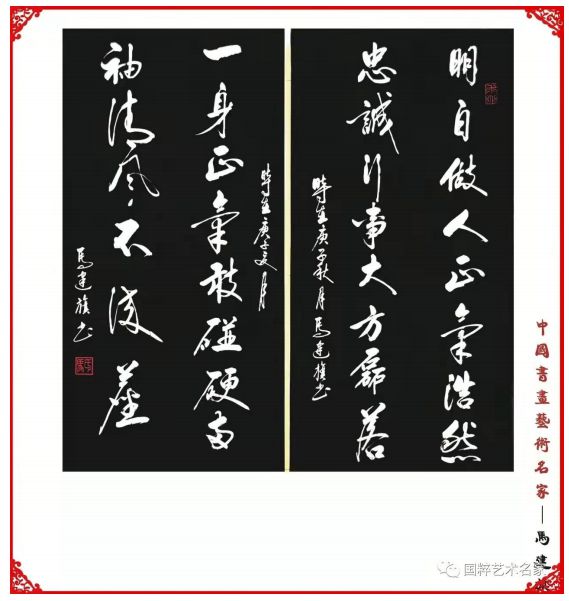 明白做人正氣浩然
忠誠行事大方磊落
時在庚子秋月馬建旗書
一身正氣敢碰硬两
袖清風不染塵
時在庚子夏月
馬建旗書
中國書畫藝術名家—馬建
国粹艺术名家